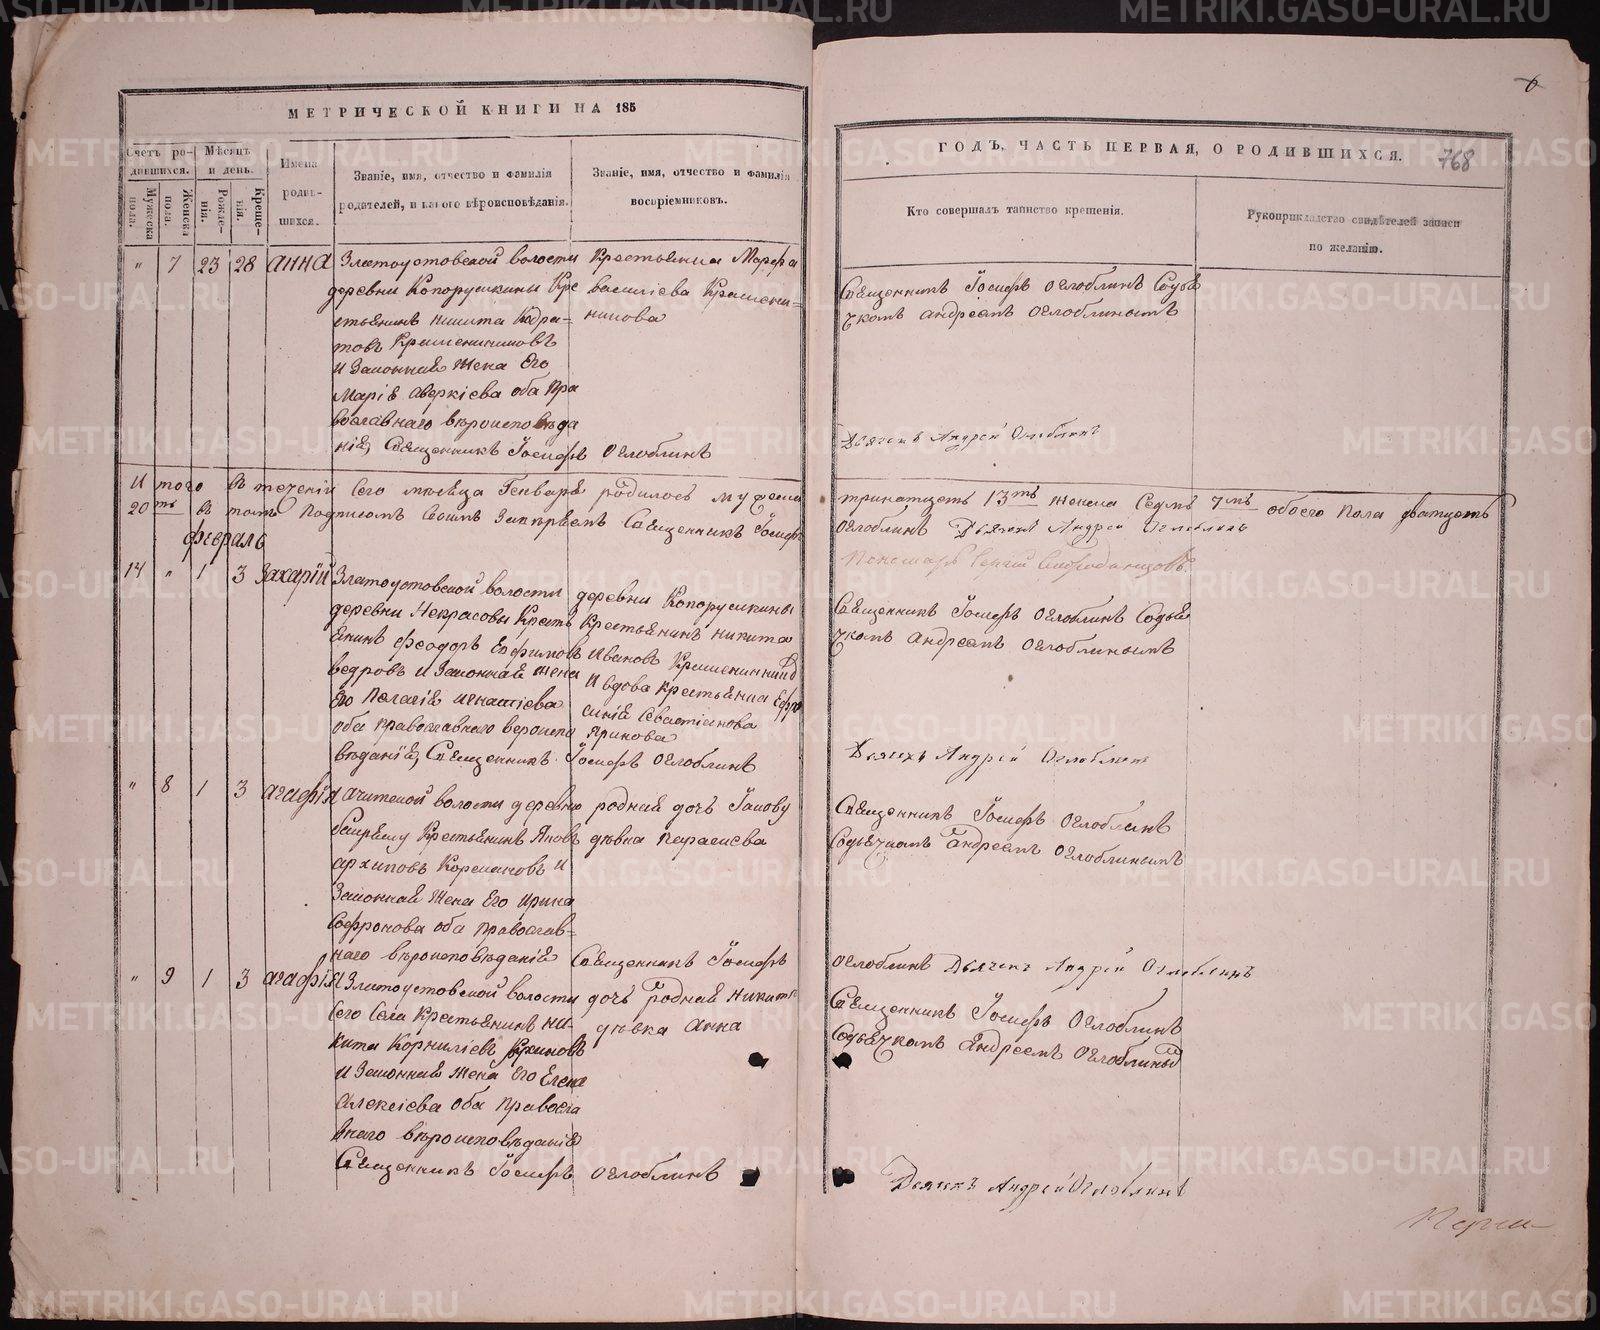 МЕТРИЧЕСКОЙ КНИГИ НА 185
Счетъ ро-
дившихся.
Мѣсяцъ
и день.
Имена
родив-
шихся.
Званіе, имя, отчество и фамилія
родителей, и какого вѣроисповѣданія.
Званіе, имя, отчество и фамилія
воспріемниковъ.
Мужеска
пола.
Женска
пола.
Рожде-
нія.
Креще-
нія.
„ 7 23 28 Анна
Златоустовской волости
деревни Копорушкины Кре
стьянинъ Никита Кодра-
товъ Крашенинниковъ
и Законная жена Его
Марія Аверкіева оба Пра
вославнаго вѣроисповѣда
нія, Священникъ Іосифъ Оглоблинъ
Крестьянка Марфа
Василіева Крашени-
никова
Итого въ теченіи Сего мѣсяца Генваря родилось мужеска
20ть въ томъ Подписомъ Своимъ Священникъ Іосифъ
Февраль
14 „ 1 3 Захарій
Златоустовской волости
деревни Некрасовы Кресть
янинъ Феодоръ Ефимовъ
Ведровъ и Законная жена
Его Пелагія Игнатіева
оба православнаго вероиспо
вѣданія, Священникъ Іосифъ Оглоблинъ
деревни Копорушкины
Крестьянинъ Никита
Ивановъ Крашенинник
и вдова крестьянка Ефро
синія Севастіанова
„ 8 1 3 Агафія
Ачитской волости деревни
Крестьянинъ Яковъ
Архиповъ и
Законная жена Его Ирина
Софронова оба православ-
наго вѣроисповѣданія Священникъ Іосифъ
родная дочь Іакову
дѣвка Параскева
„ 9 1 3 Агафія
Златоустовской волости
Сего Села Крестьянинъ Ни-
кита Корниліевъ
и Законная жена Его Елена
Алексіева оба православ
внаго вѣроисповѣданія
Священникъ Іосифъ Оглоблинъ
дочь родная Никиты
дѣвка Анна
6
ГОДЪ, ЧАСТЬ ПЕРВАЯ, О РОДИВШИХСЯ.
768
Кто совершалъ таинство крещенія.
Рукоприкладство свидѣтелей записи
по желанію.
Священникъ Іосифъ Оглоблинъ Содья
чкомъ Андреемъ Оглоблинымъ
Дьячекъ Андрей Оглоблинъ
тринатцеть 13ть женска Седмь 7мь обоего пола дватцеть
Оглоблинъ Дьячекъ Андрей Оглоблинъ
Пономарь Сергій
Священникъ Іосифъ Оглоблинъ Содья
чкомъ Андреемъ Оглоблинымъ
Дьячекъ Андрей Оглоблинъ
Священникъ Іосифъ Оглоблинъ
Содьячкомъ Андреемъ Оглоблинымъ
Оглоблинъ Дьячекъ Андрей Оглоблинъ
Священникъ Іосифъ Оглоблинъ
Содьячкомъ Андреемъ Оглоблиным
Дьячекъ Андрей Оглоблинъ
METRIKI.GASO-URAL.RU